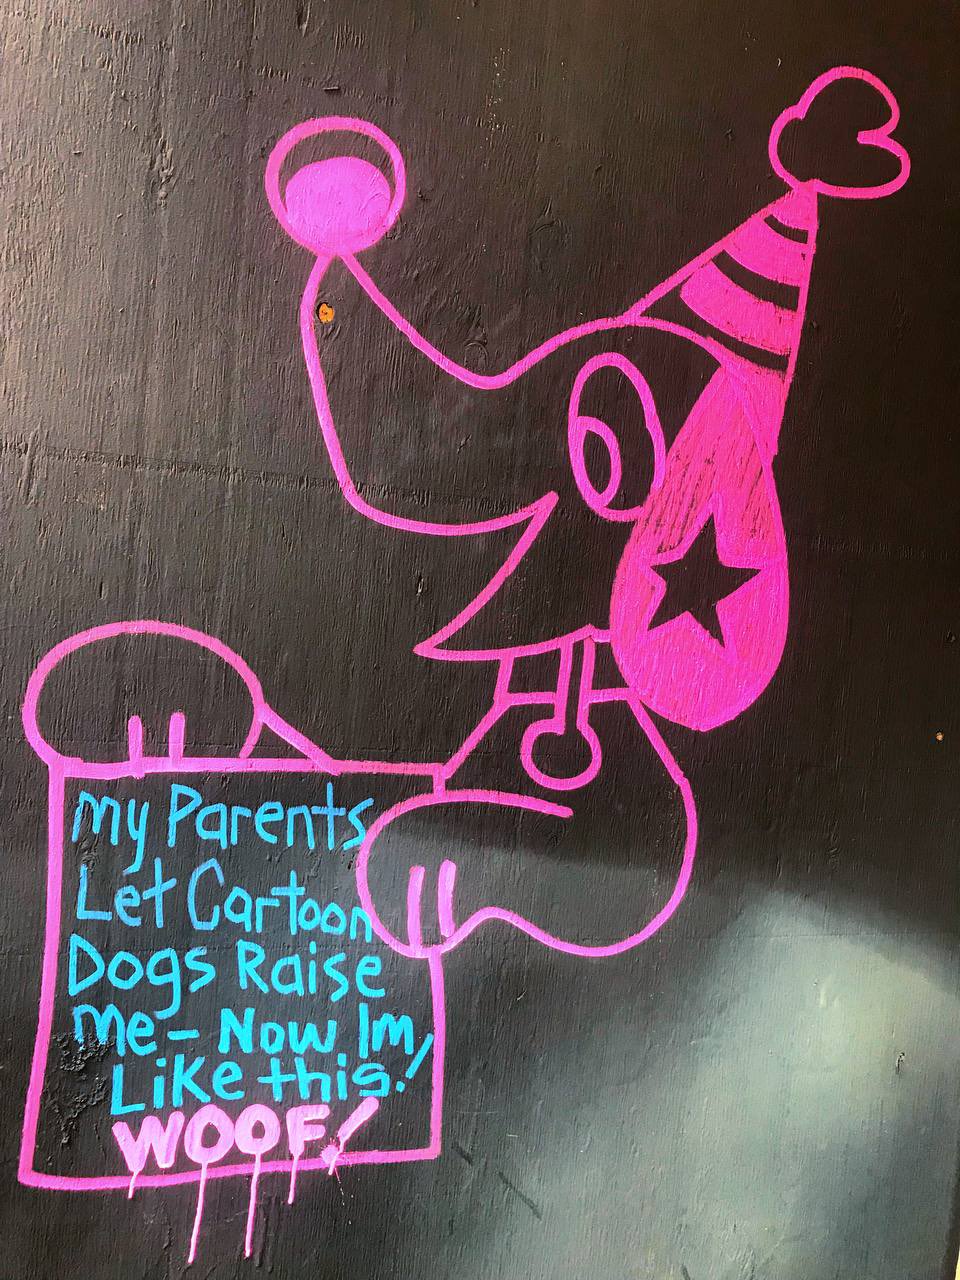 My Parents
Let Cartoon
Dogs Raise
Me - Now Im
Like this!
WOOF!